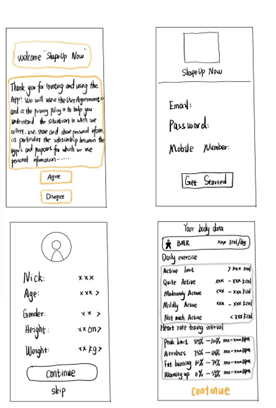 Welcome "ShapeUp Now"
Thank you for trusting and using the
APP! We will use the User Agreement
and the privacy policy to help you
understand the situation in which we
collect, use, store and share personal inform
in particular the relationship between the
types and purposes for which we use
personal information......
Agree
Disagree
ShapeUp Now
Email:
Password:
Mobile Number:
Get Started
Nick: xxx
Age: xxx >
Gender: xx >
Height: xx cm >
Weight: xx kg >
Continue
skip
Your body data
BMR xxx kcal/day
Daily exercise
Active limit > xxx kcal
Quite Active xxx - xxx kcal
Moderately Active xxx - xxx kcal
Mildly Active xxx - xxx kcal
Not much Active < xxx kcal
Heart rate training interval
Peak limit
Aerobics
Fat burning
Warming up
continue